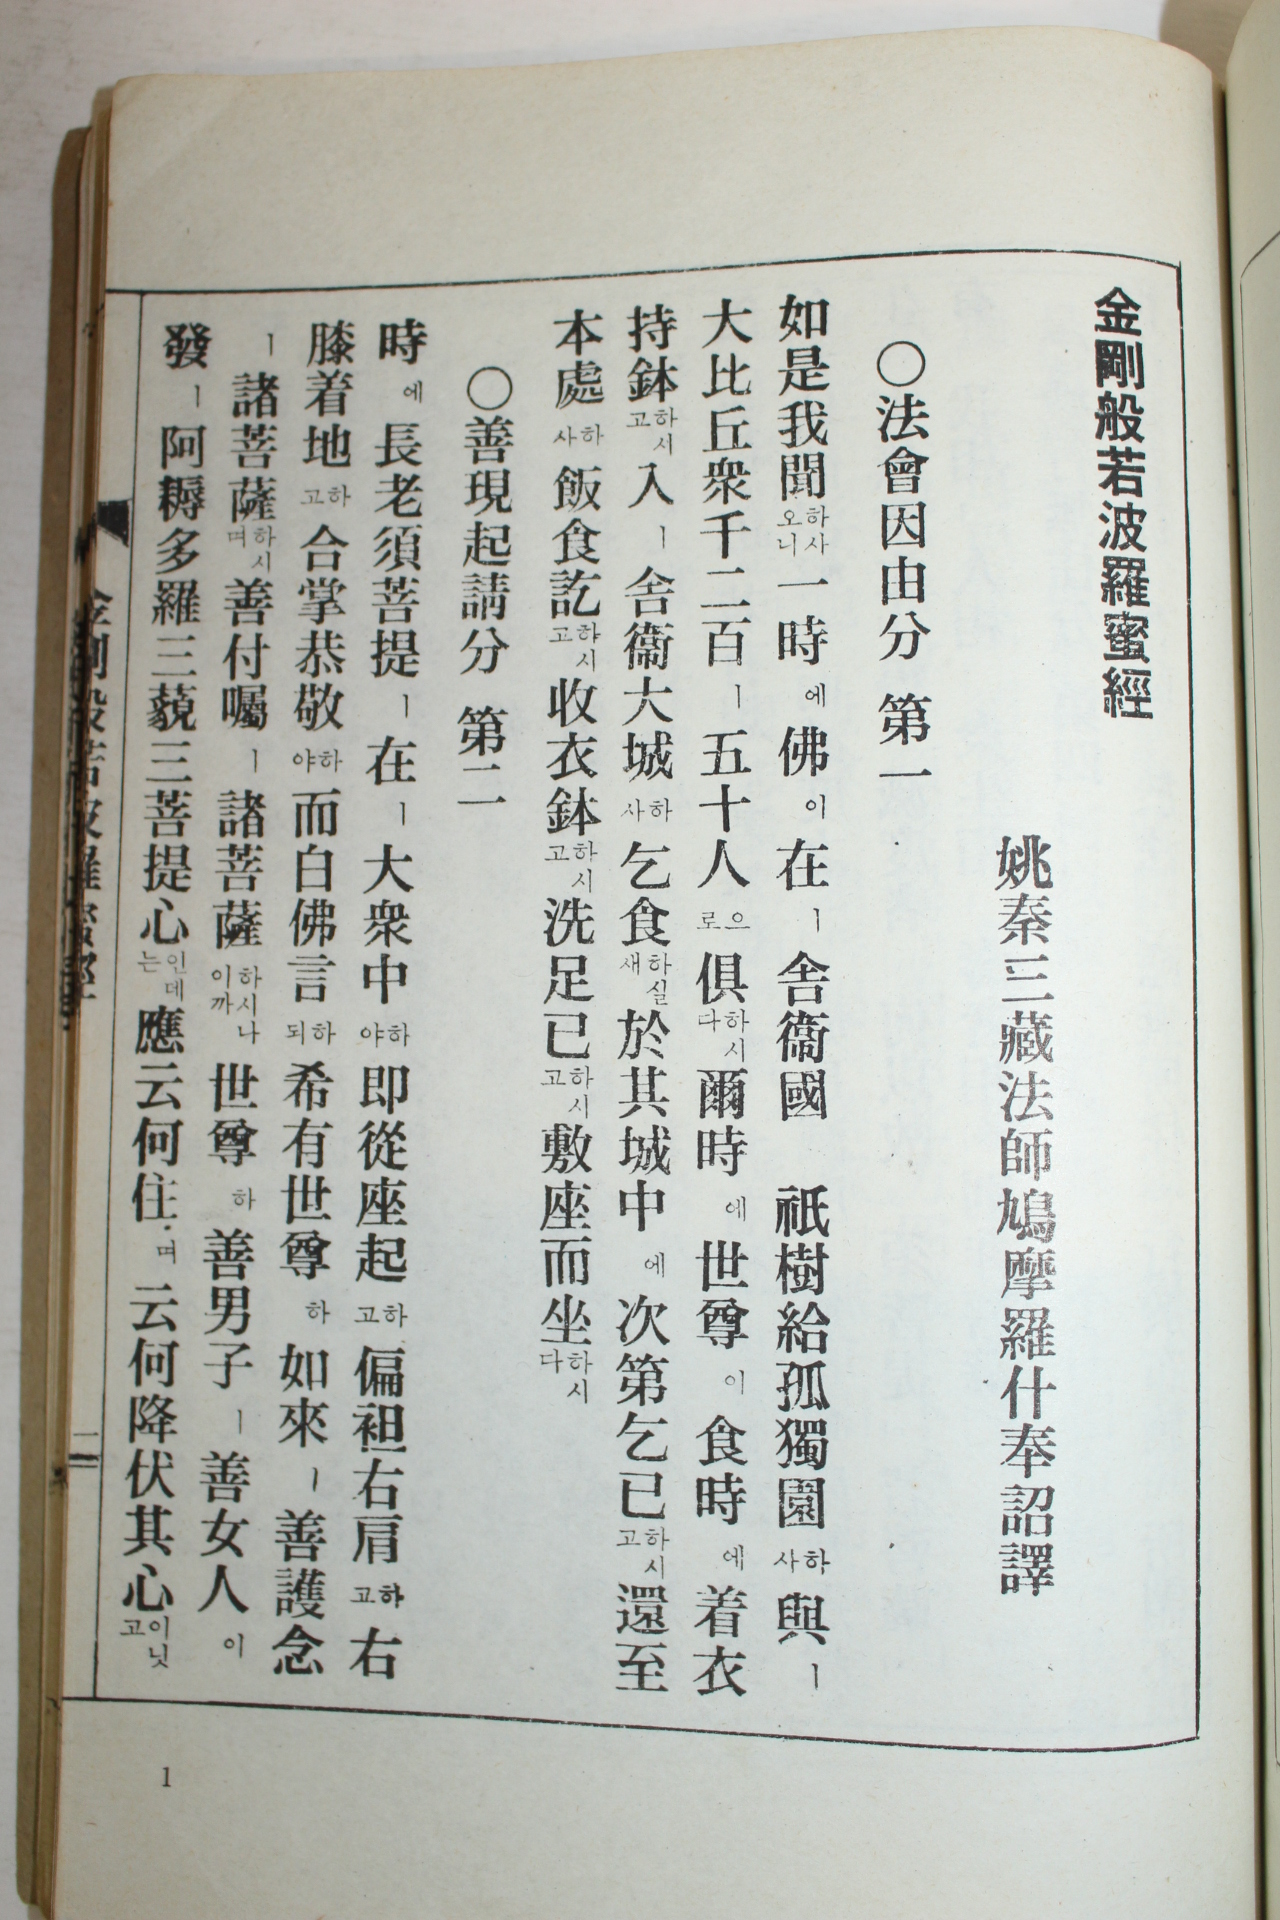 金剛般若波羅蜜經
姚秦三藏法師鳩摩羅什奉詔譯
○法會因由分 第一
如是我聞하사오니一時에佛이在ㅣ舍衞國 祇樹給孤獨園하사與ㅣ
大比丘衆千二百ㅣ五十人으로俱하시다爾時에世尊이食時에着衣
持鉢하시고入ㅣ舍衞大城하사乞食하실새於其城中에次第乞已하시고還至
本處하사飯食訖하시고收衣鉢하시고洗足已하시고敷座而坐하시다
○善現起請分 第二
時에長老須菩提ㅣ在ㅣ大衆中하야即從座起하고偏袒右肩하고右
膝着地하고合掌恭敬하야而白佛言하되希有世尊하如來ㅣ善護念
ㅣ諸菩薩하시며善付囑ㅣ諸菩薩하시나이까世尊하善男子ㅣ善女人이
發ㅣ阿耨多羅三藐三菩提心인데는應云何住며云何降伏其心이닛고
金剛般若波羅蜜經
一
1